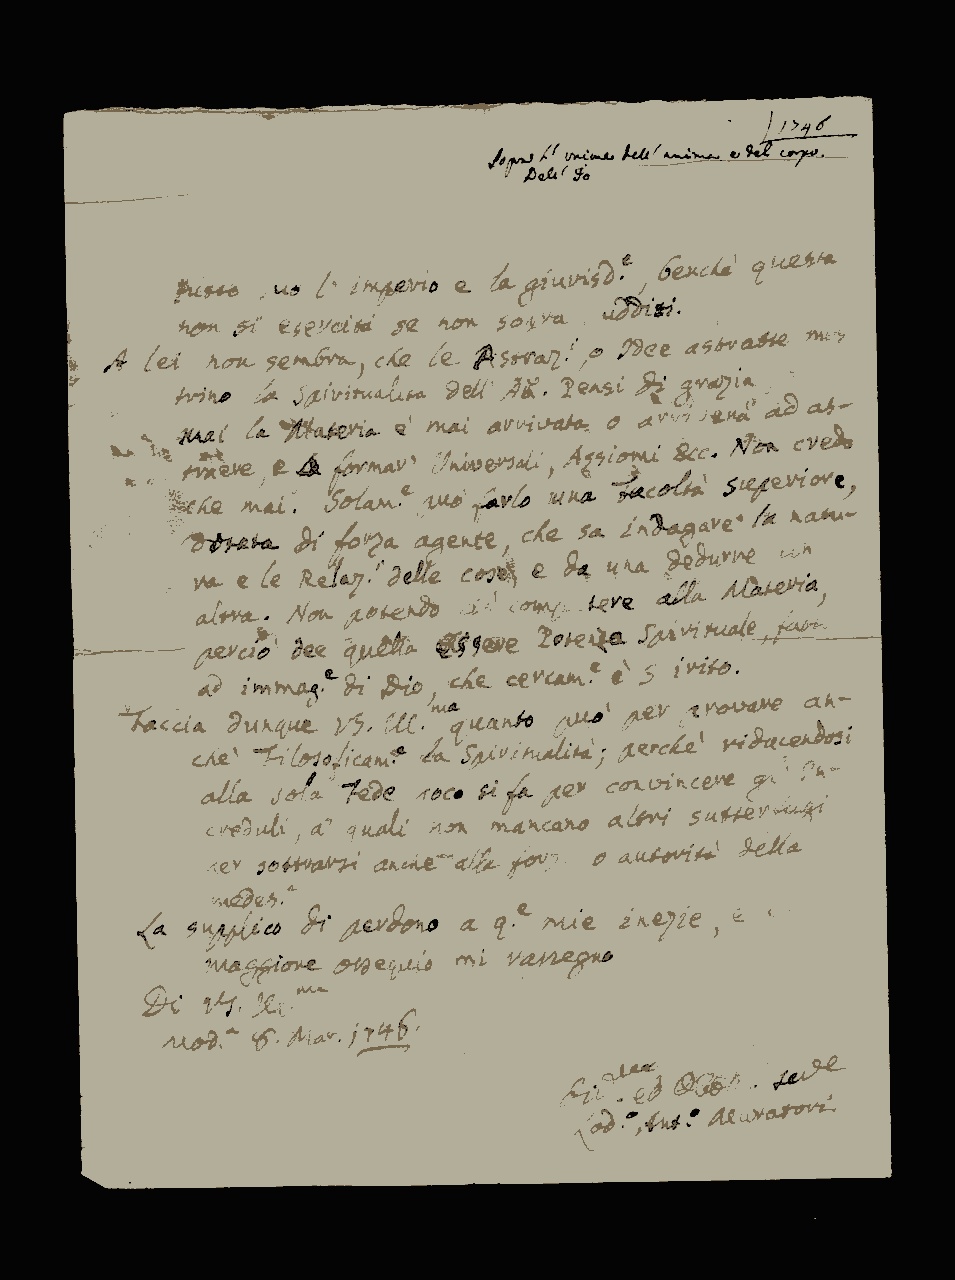 1746
Sopra l' unione dell' anima e del corpo.
Dell' Io
tutto suo l' imperio e la giurisd.e, benchè questa
non si eserciti se non sovra sudditi.
A lei non sembra, che le Astraz.i, o Idee astratte mos
trino la Spiritualità dell' An. Pensi di grazia
mai la Materia è mai arrivata o arriverà ad as-
traere, e a formar' Universali, Assiomi &c. Non credo
che mai. Solam.e può farlo una Facoltà superiore,
dotata di forza agente, che sa indagare la natu-
ra e le Relaz.i delle cose, e da una dedurne un
altra. Non potendo ciò competere alla Materia,
perciò dee quella essere Potenza Spirituale, fatta
ad immag.e di Dio, che certam.e è Spirito.
Faccia dunque VS. Ill.ma quanto può per provare an-
che Filosoficam.e la Spiritualità; perchè riducendosi
alla sola Fede poco si fa per convincere gl' In-
creduli, a' quali non mancano altri sutterfugi
per sottrarsi anche alla forza o autorità della
medes.a
La supplico di perdono a q.e mie inezie, e
maggiore ossequio mi rassegno
Di VS. Ill.ma
Mod.a 8. Mar. 1746.
ed Obbl. serve
Lod.o Ant.o Muratori